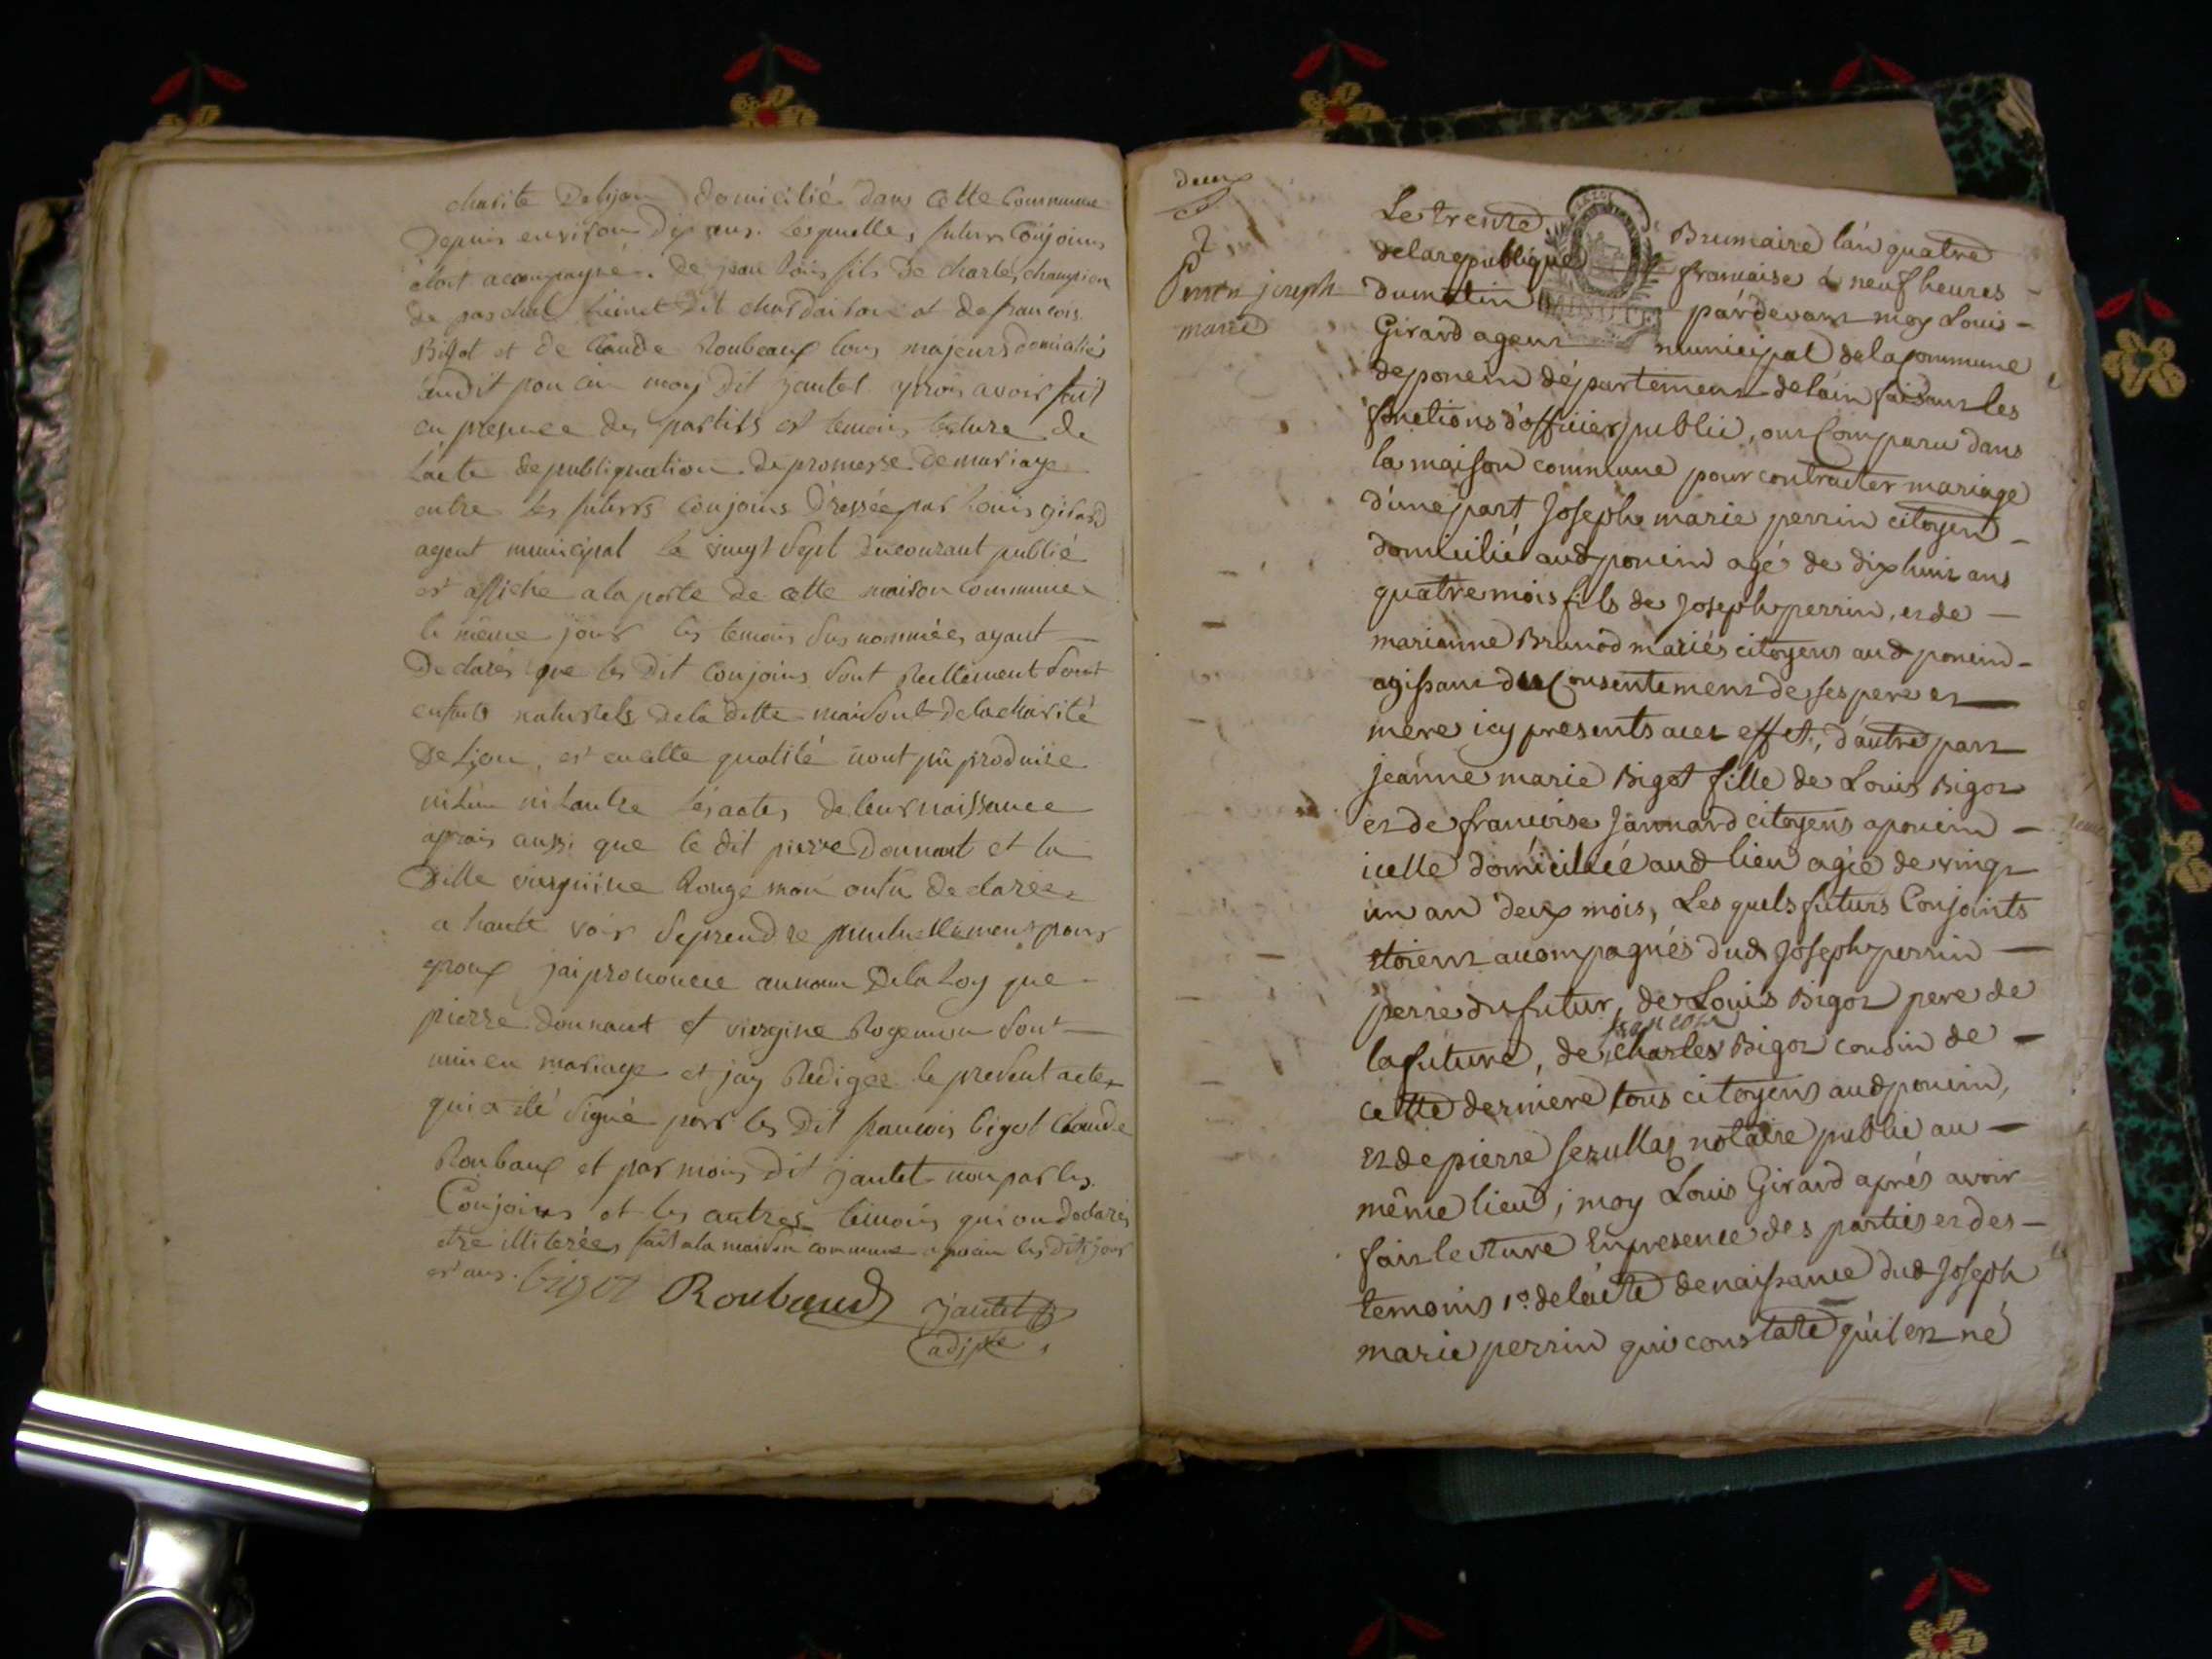 charité De lyon domicilié dans Cette Commune
Depuis environ Dix ans. Lesquelles futurs Conjoins
étoit acompagné. de jean Loüis fils de charle, champion
de paschal Lienet dit chardairon et de francois
Bigot et de Claude Roubeaux tous majeurs domiciliés
audit poncin moy dit jantet aprois avoir fait
en presence des partits et temoins lecture de
Lacte de publiquation de promesse de mariage
entre les futurs conjoins Dressée par Louis girard
agent municipal le vingt Sept du courant publié
et affiché a la porte de cette maison Commune
le même jour les temoins Sus nommées ayant
Declarés que les Dit Conjoins Sont Réellement Sont
enfants naturels de la ditte maison de la charité
De Lion, et en cette qualité nont pû produire
ni Lun ni Lautre Les actes de leur naissance
aprois aussi que le dit pierre Donnant et la
Ditte vierginie Rougemon ont declarée
a haute voix Seprendre mutuellement pour
epoux jai prononcée au nom De la Loy que
pierre donnant et viergine Rogemon Sont
unis en mariage et jay Redigée le present acte
qui a été Signé par les Dit francois bigot Claude
Roubaux et par mois dit jantet non par les
Conjoins et les autres temoins qui on declarés
etre illiterées fait a la maison commune a poncin les dits jour
et ans. bigot Roubaud jantet
adjte
deux
2
Perrin joseph
marie
Le trente Brumaire l'an quatre
de la republique francaise à neuf heures
du matin pardevant moy Louis
MINUTE
Girard agent municipal de la commune
de poncin département de l'ain faisant les
fonctions d'officier public, ont Comparu dans
la maison commune pour contracter mariage
d'une part Joseph marie perrin citoyen
domicilié aud poncin agé de dix huit ans
quatre mois fils de Joseph perrin, et de
marianne Brunod mariés citoyens aud poncin
agissant du Consentement de ses pere et
mere icy presents a cet effet, d'autre part
jeanne marie Bigot fille de Louis Bigot
et de francoise Jannard citoyens a poncin
icelle domiciliée aud lieu agée de vingt
un an deux mois, Les quels futurs Conjoints
etoient accompagnés dud Joseph perrin
perre du futur, de Louis Bigot pere de
francois
la future, de charles Bigot cousin de
cette derniere tous citoyens aud poncin,
et de pierre Serullas notaire public au
même lieu; moy Louis Girard aprés avoir
fait lecture En presence des parties et des
temoins 1.o de l'acte de naissance dud Joseph
marie perrin qui constate qu'il est né